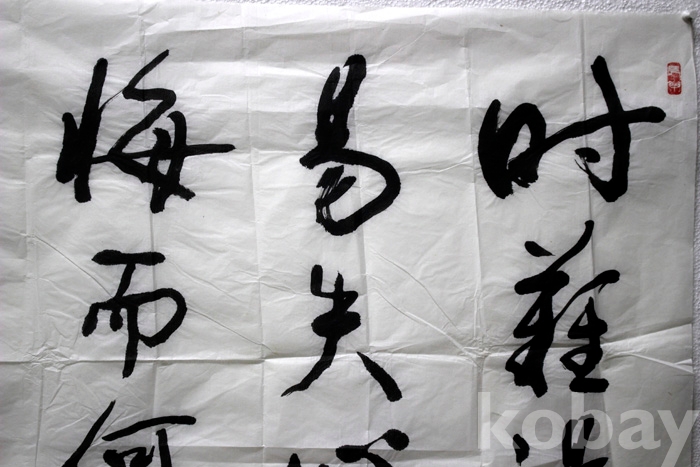 时難
易失
悔而何
kobay